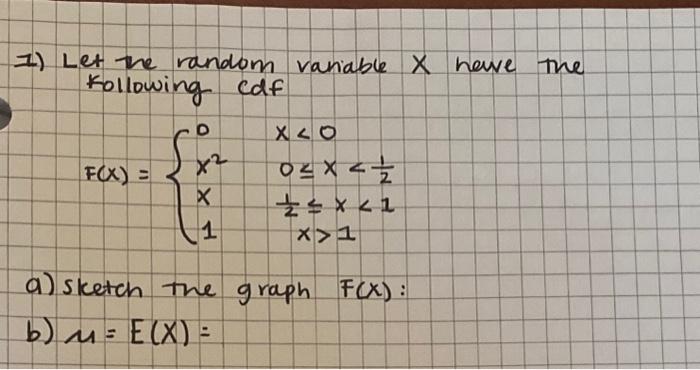 1) Let the random variable X have the
following cdf
F(X) = { 0 x < 0
x² 0 ≤ x < 1/2
x 1/2 ≤ x < 1
1 x > 1
a) sketch the graph F(X):
b) μ = E(X) =